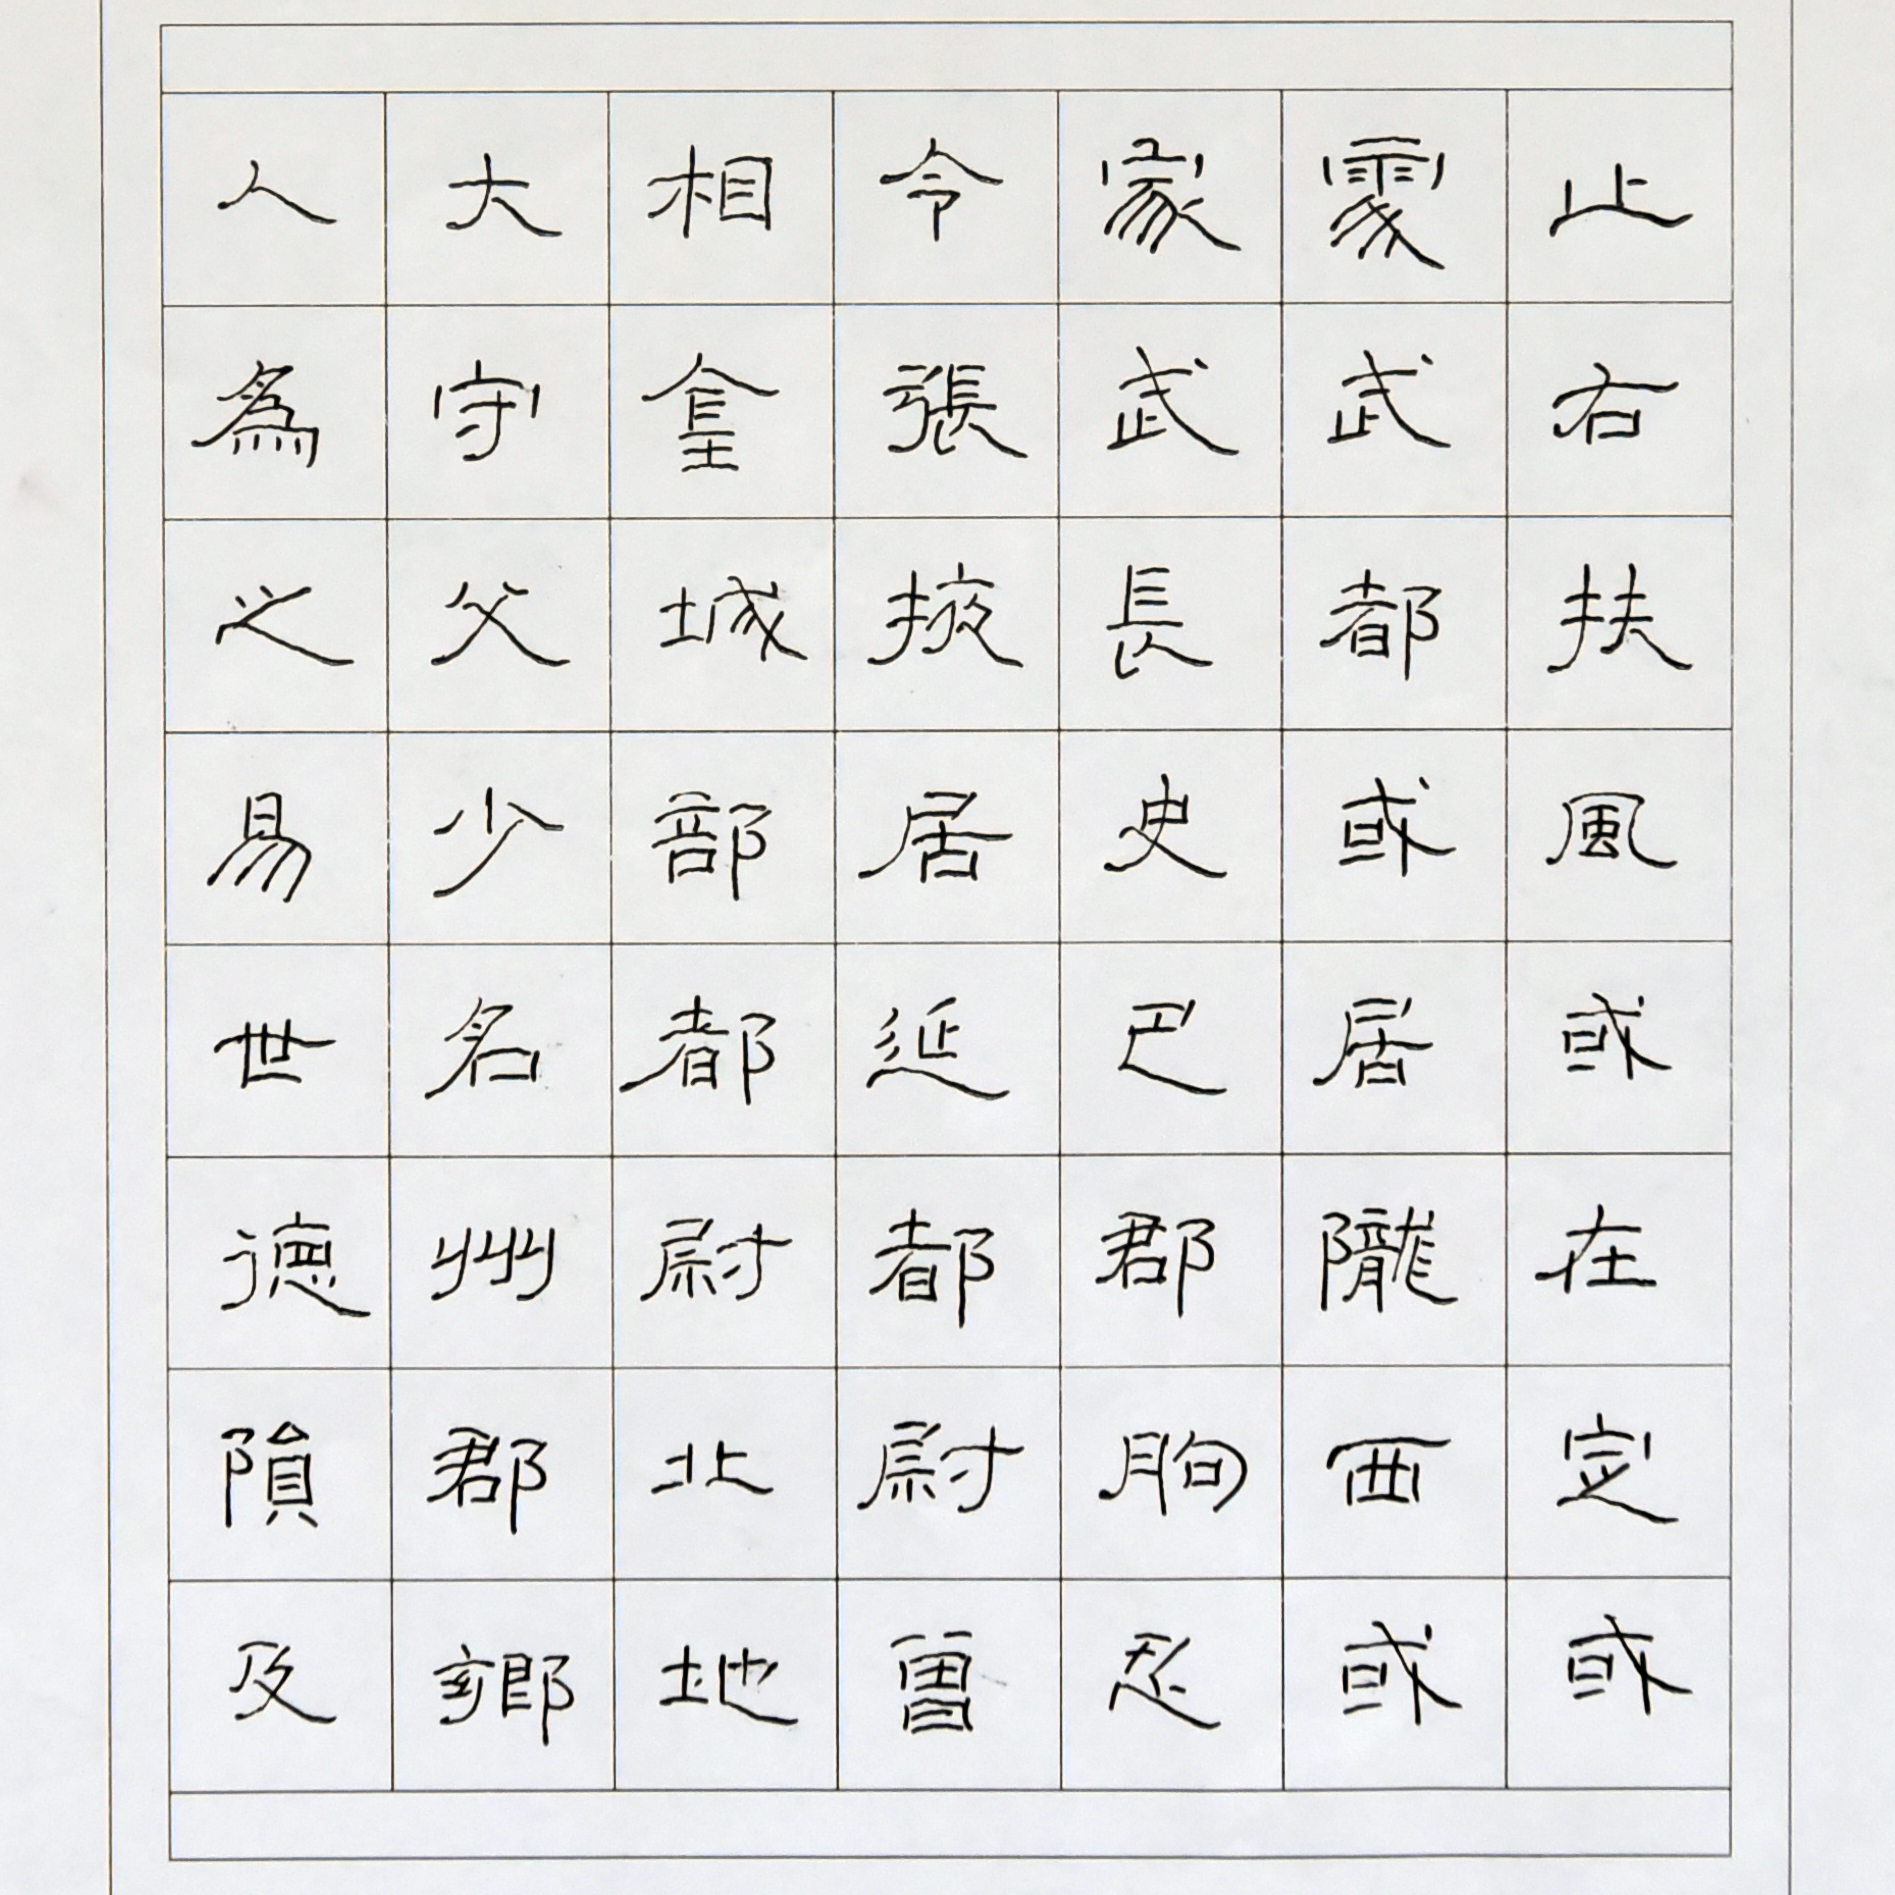 止右扶風或在定或
處武都或居隴西或
家武長史巴郡朐忍
令張掖居延都尉曾
相金城部都尉北地
大守父少名州郡鄉
人為之易世德隕及